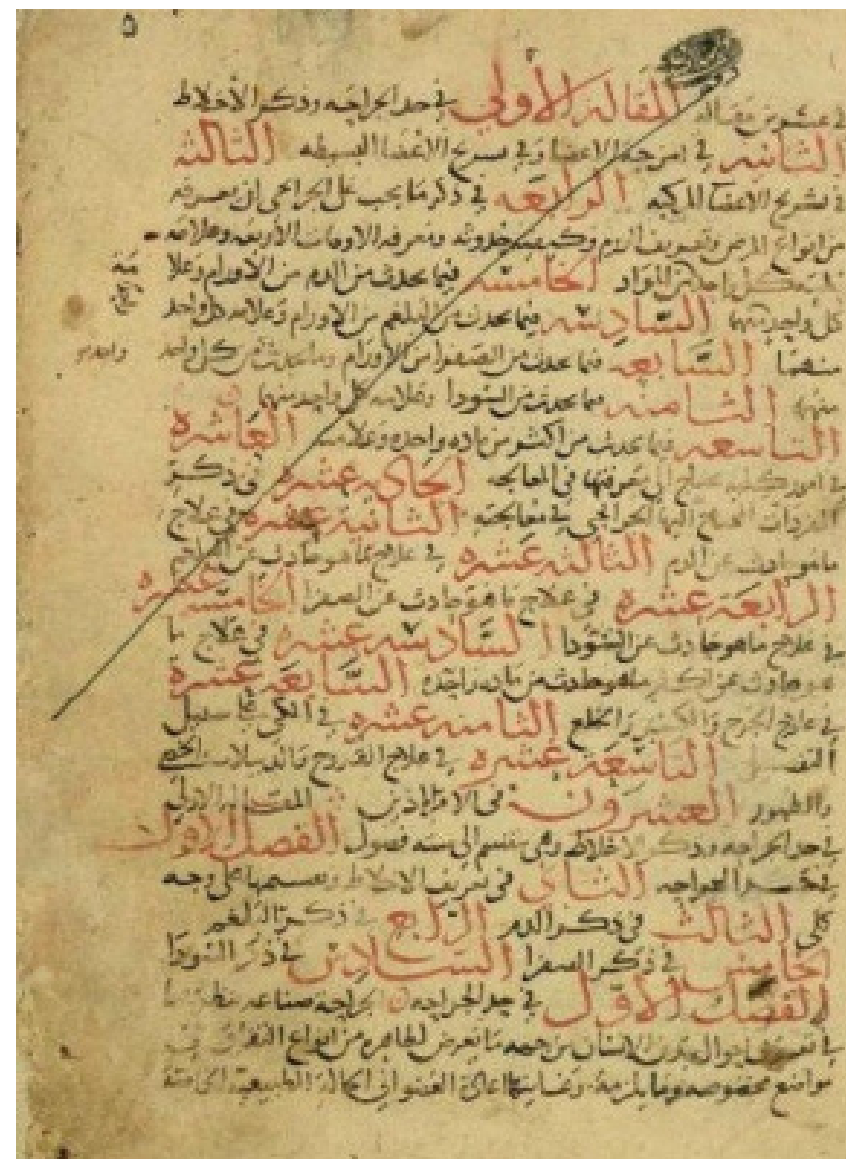 ٥
في عشرين مقالة المقالة الأولى في حد الجراحة وذكر الأخلاط
الثانيه في امزجة الاعضا وفي تشريح الاعضا البسيطه الثالثة
في تشريح الاعضا المركبه الرابعه في ذكر ما يجب على الجرايحي ان يعرفه
من انواع المرض وتعريف الورم وكيفية حدوثه ومعرفة الاوقات الأربعه وعلامه
كل واحد من المواد الخامسه فيما يحدث من الدم من الأورام وعلا
كل واحد منهما السادسه فيما يحدث من البلغم من الاورام وعلامه كل واحد
منهما السابعه فيما يحدث من الصفرا من الأورام وما يحدث من كل واحد
واحد
منهما الثامنه فيما يحدث من السودا وعلامه كل واحد منهما
التاسعه فيما يحدث من اكثر من ماده واحده وعلامته العاشره
في امور كليه يحتاج الى معرفتها في المعالجه الحاديه عشره في ذكر
المفردات المحتاج اليها الجرايحي في معالجته الثانية عشره في علاج
ما هو حادث عن الدم الثالثه عشره في علاج ما هو حادث عن البلغم
الرابعة عشره في علاج ما هو حادث عن الصفرا الخامسه عشره
في علاج ما هو حادث عن السودا السادسه عشره في علاج ما
هو حادث عن اكثر من ماده واحده السابعه عشره
في علاج الجرح والكسر والخلع الثامنه عشره في الكي على سبيل
التفصيل التاسعة عشره في علاج القروح والدبيلات
والظهور العشرون في الاقراباذين المقاله الاولى
في حد الجراحه وذكر الاخلاط وهي تنقسم الى سته فصول الفصل الاول
في حد الجراحه الثاني في تعريف الاخلاط وتقسيمها على وجه
كلي الثالث في ذكر الدم الرابع في ذكر البلغم
الخامس في ذكر الصفرا السادس في ذكر السودا
الفصل الاول في حد الجراحه الجراحة صناعه ينظر بها
في تعريف احوال بدن الانسان من جهه ما يعرض لظاهره من انواع التفرق في
مواضع مخصوصه وما يلزمه وغايتها اعادة العضو الى الحالة الطبيعية الخاصة